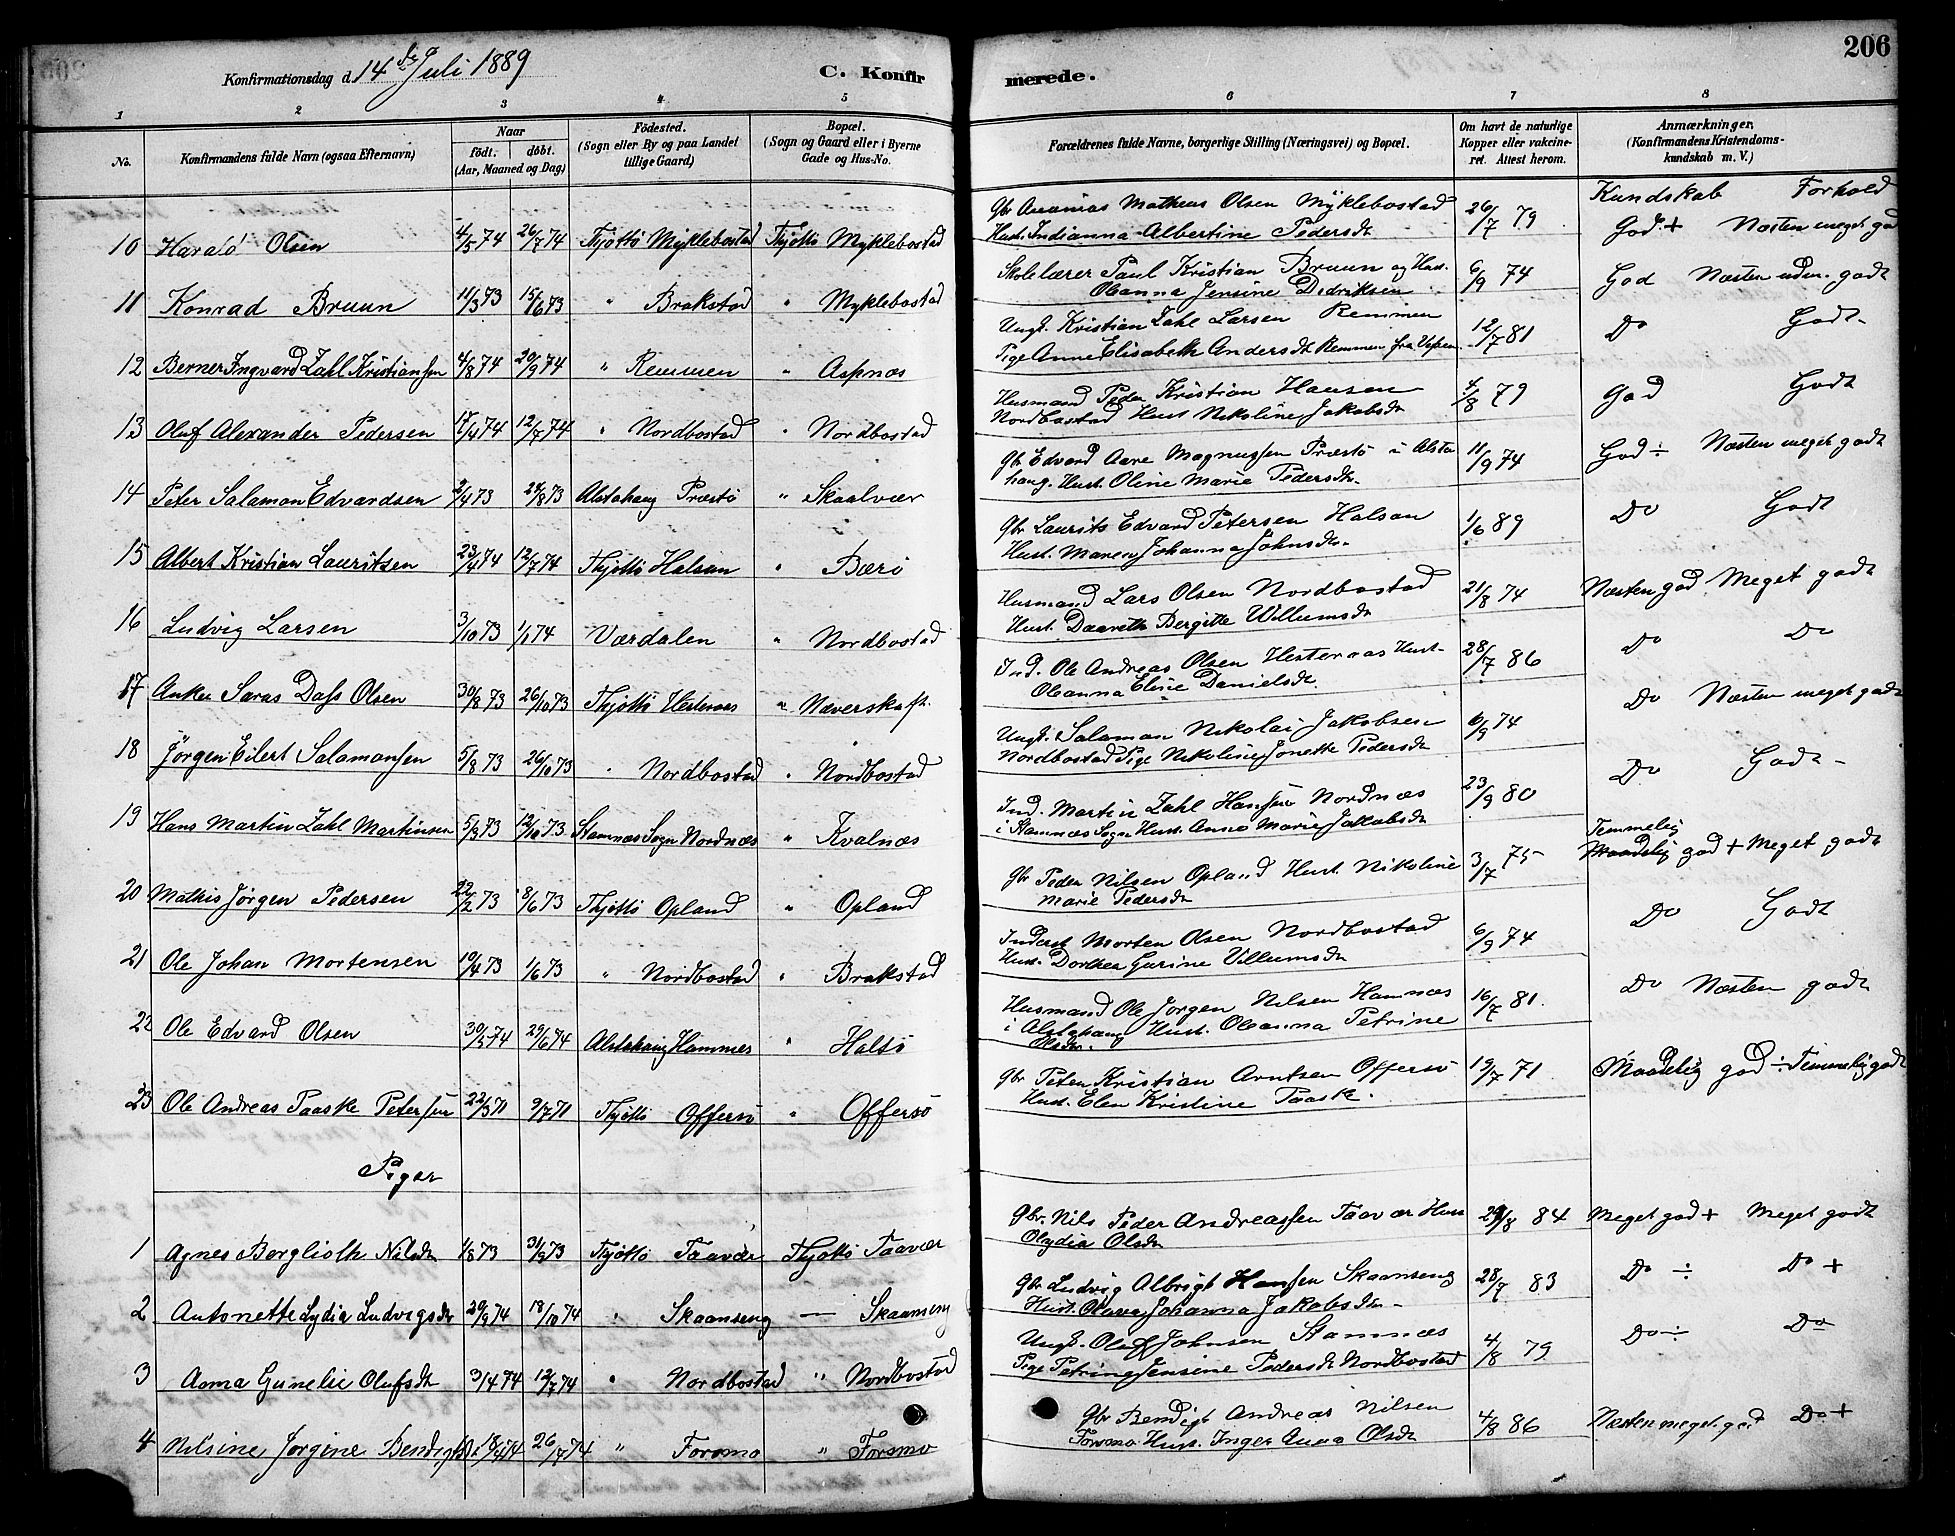 206
Konfirmationsdag d. 14de Juli 1889 C. Konfir merede.
1 2 3 4 5 6 7 8
No. Konfirmandens fulde Navn (ogsaa Efternavn)
Naar
født. døbt.
(Aar, Maaned og Dag)
Födested.
(Sogn eller By og paa Landet
tillige Gaard)
Bopæl.
(Sogn og Gaard eller i Byerne
Gade og Hus-No.
Forældrenes fulde Navne, borgerlige Stilling (Næringsvei) og Bopæl.
Om havt de naturlige
Kopper eller vaccine-
ret. Attest herom.
Anmærkninger,
(Konfirmandens Kristendoms-
kundskab m. V.)
Kundskab Forhold
10 Harald Olsen 4/5 74 26/7 74 Thjöttö Myklebostad Thjöttö Myklebostad
Gbr Ananias Mathias Olsen Myklebostad
Hust. Indianna Albertine Pedersdt 26/7 79 God + Næsten meget godt
11 Konrad Bruun 11/3 73 15/6 73 " Brakstad " Myklebostad
Skolelærer Paul Kristian Bruun og Hust.
Oleanna Jensine Didriksen 6/9 74 God Næsten uden. godt
12 Berner Ingvard Zahl Kristiansen 4/8 74 20/9 74 " Remmen " Aspnæs
Ungk. Kristian Zahl Larsen Remmen
Pige Anne Elisabeth Andersdt Remmen fra Vefsen 12/7 81 Do Godt
13 Oluf Alexander Pedersen 17/4 74 12/7 74 " Nordbostad " Nordbostad
Husmand Peder Kristian Hansen
Nordbostad Hust Nikoline Jakobsdt 4/8 79 God Godt
14 Peter Salamon Edvardsen 2/4 73 24/8 73 Alstahaug Præstö " Skaalvær
Gbr Edvard Aare Magnussen Præstö i Alsta
haug. Hust. Oline Marie Pedersdt. 11/9 74 God ÷ Næsten meget godt
15 Albert Kristian Lauritsen 23/4 74 12/7 74 Thjöttö Halsan " Bærö
Gbr Laurits Edvard Petersen Halsan
Hust. Maren Johanna Johnsdt. 1/6 89 Do Godt
16 Ludvig Larsen 3/10 73 1/1 74 Værdalen " Nordbostad
Husmand Lars Olsen Nordbostad
Hust. Daareth Bergitte Willumsdt 21/8 74 Næsten god Meget godt
17 Anker Saras Dass Olsen 30/8 73 26/10 73 Thjöttö Hestenæs " Næverskaft.
Ind. Ole Andreas Olsen Hestenæs Hust.
Oleanna Eline Danielsdt 28/7 86 Do Do
18 Jörgen Eilert Salamonsen 5/8 73 26/10 73 " Nordbostad " Nordbostad
Ungk. Salamon Nikolai Jakobsen
Nordbostad Pige Nikoline Jonette Pedersdt 6/9 74 Do Næsten meget godt
19 Hans Martin Zahl Martinsen 5/8 73 12/10 73 Stamnæs Sogn Nordnæs " Kvalnæs
Ind. Martin Zahl Hansen Nordnæs
i Stamnæs Sogn Hust. Anne Marie Jakobsdt 23/9 80 Do Godt
20 Mathis Jörgen Pedersen 22/2 73 8/6 73 Thjöttö Opland " Opland
Gbr Peder Nilsen Opland Hust. Nikoline
Marie Pedersdt 3/7 75 Temmelig
Maadelig god + Meget godt
21 Ole Johan Mortensen 10/4 73 1/6 73 " Nordbostad " Brakstad
Inderst Morten Olsen Nordbostad
Hust. Dorthea Gurine Villumsdt 6/9 74 Do Godt
22 Ole Edvard Olsen 30/5 74 29/6 74 Alstahaug Hamnæs " Haltö
Husmand Ole Jørgen Nilsen Hamnæs
i Alstahaug Hust. Oleanna Petrine
Olsdt. 16/7 81 Do Næsten godt
23 Ole Andreas Paaske Petersen 22/3 71 9/7 71 Thjöttö Offersö " Offersö
Gbr Peter Kristian Arntsen Offersö
Hust. Elen Kristine Paaske. 19/7 71 Maadelig god ÷ Temmelig godt
Piger
1 Agnes Borglioth Nilsdt 1/8 73 31/8 73 Thjöttö Taavær Thjöttö Taavær
Gbr. Nils Peder Andreassen Taavær Hust
Olydia Olsdt 29/8 84 Meget god + Meget godt
2 Antonette Lydia Ludvigsdt 20/9 74 18/10 74 " Skaanseng — Skaanseng
Gbr Ludvig Albrigt Hansen Skaanseng
Hust. Olava Johanna Jakobsdt 28/7 83 Do ÷ Do +
3 Anna Gunelie Olufsdt 3/4 74 12/7 74 " Nordbostad " Nordbostad
Ungk. Oluf Johnsen Stamnæs
Pige Petrine Jensine Pedersdt Nordbostad 4/8 79 Do ÷ Do
4 Nilsine Jørgine Bendigtsdt 18/4 74 26/7 74 " Forsmo " Forsmo
Gbr Bendigt Andreas Nilsen
Forsmo Hust. Inger Anna Olsdt 4/8 86 Næsten meget god Do +